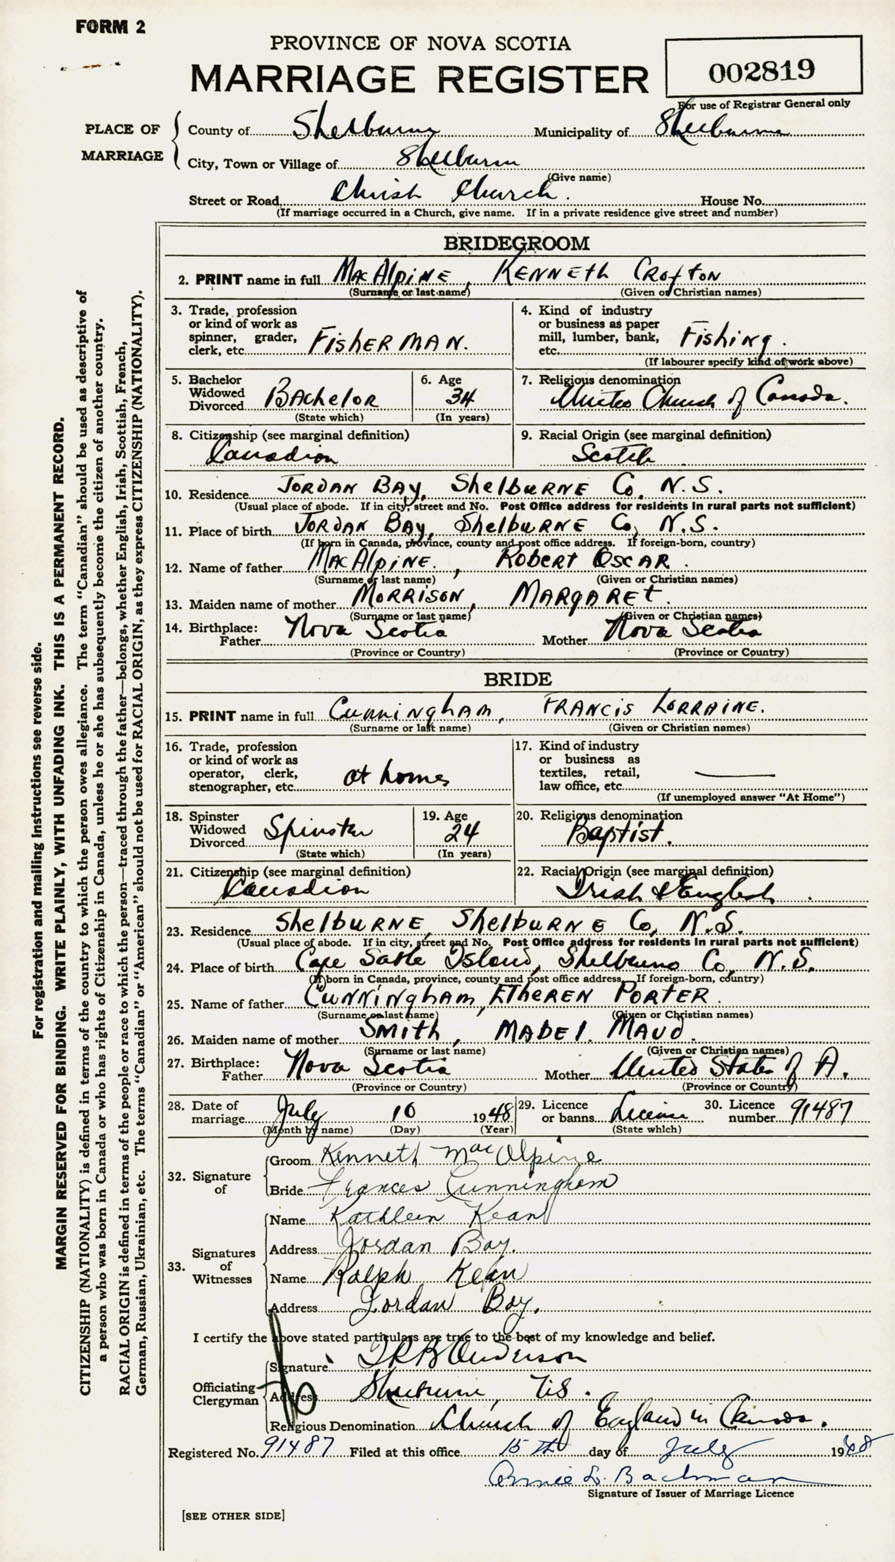 FORM 2
PROVINCE OF NOVA SCOTIA
MARRIAGE REGISTER
002819
For use of Registrar General only
PLACE OF MARRIAGE
County of Shelburne Municipality of Shelburne
City, Town or Village of Shelburne
(Give name)
Street or Road Christ Church. House No.
(If marriage occurred in a Church, give name. If in a private residence give street and number)
BRIDEGROOM
2. PRINT name in full MacAlpine, Kenneth Crofton
(Surname or last name) (Given or Christian names)
3. Trade, profession or kind of work as spinner, grader, clerk, etc. Fisherman.
4. Kind of industry or business as paper mill, lumber, bank, etc. Fishing.
(If labourer specify kind of work above)
5. Bachelor Widowed Divorced Bachelor
(State which)
6. Age 34
(In years)
7. Religious denomination United Church of Canada.
8. Citizenship (see marginal definition) Canadian
9. Racial Origin (see marginal definition) Scotch
10. Residence Jordan Bay, Shelburne Co, N.S.
(Usual place of abode. If in city, street and No. Post Office address for residents in rural parts not sufficient)
11. Place of birth Jordan Bay, Shelburne Co, N.S.
(If born in Canada, province, county and post office address. If foreign-born, country)
12. Name of father MacAlpine, Robert Oscar.
(Surname or last name) (Given or Christian names)
13. Maiden name of mother Morrison, Margaret.
(Surname or last name) (Given or Christian names)
14. Birthplace: Father Nova Scotia Mother Nova Scotia
(Province or Country) (Province or Country)
BRIDE
15. PRINT name in full Cunningham, Francis Lorraine.
(Surname or last name) (Given or Christian names)
16. Trade, profession or kind of work as operator, clerk, stenographer, etc. at home
17. Kind of industry or business as textiles, retail, law office, etc.
(If unemployed answer "At Home")
18. Spinster Widowed Divorced Spinster
(State which)
19. Age 24
(In years)
20. Religious denomination Baptist.
21. Citizenship (see marginal definition) Canadian
22. Racial Origin (see marginal definition) Irish & English.
23. Residence Shelburne, Shelburne Co, N.S.
(Usual place of abode. If in city, street and No. Post Office address for residents in rural parts not sufficient)
24. Place of birth Cape Sable Island, Shelburne Co, N.S.
(If born in Canada, province, county and post office address. If foreign-born, country)
25. Name of father Cunningham, Etheren Porter.
(Surname or last name) (Given or Christian names)
26. Maiden name of mother Smith, Mabel Maud.
(Surname or last name) (Given or Christian names)
27. Birthplace: Father Nova Scotia Mother United States of A.
(Province or Country) (Province or Country)
28. Date of marriage July 10 1948
(Month by name) (Day) (Year)
29. Licence or banns License
(State which)
30. Licence number 91487
32. Signature of
Groom Kenneth MacAlpine
Bride Frances Cunningham
33. Signatures of Witnesses
Name Kathleen Kean
Address Jordan Bay.
Name Ralph Kean
Address Jordan Bay.
I certify the above stated particulars are true to the best of my knowledge and belief.
Officiating Clergyman
Signature Anderson
Address Shelburne, N.S.
Religious Denomination Church of England in Canada.
Registered No. 91487 Filed at this office 15th day of July 1948
Annie L. Bachman
Signature of Issuer of Marriage Licence
[SEE OTHER SIDE]
For registration and mailing instructions see reverse side.
MARGIN RESERVED FOR BINDING. WRITE PLAINLY, WITH UNFADING INK. THIS IS A PERMANENT RECORD.
CITIZENSHIP (NATIONALITY) is defined in terms of the country to which the person owes allegiance. The term "Canadian" should be used as descriptive of
a person who was born in Canada or who has rights of Citizenship in Canada, unless he or she has subsequently become the citizen of another country.
RACIAL ORIGIN is defined in terms of the people or race to which the person—traced through the father—belongs, whether English, Irish, Scottish, French,
German, Russian, Ukrainian, etc. The terms "Canadian" or "American" should not be used for RACIAL ORIGIN, as they express CITIZENSHIP (NATIONALITY).